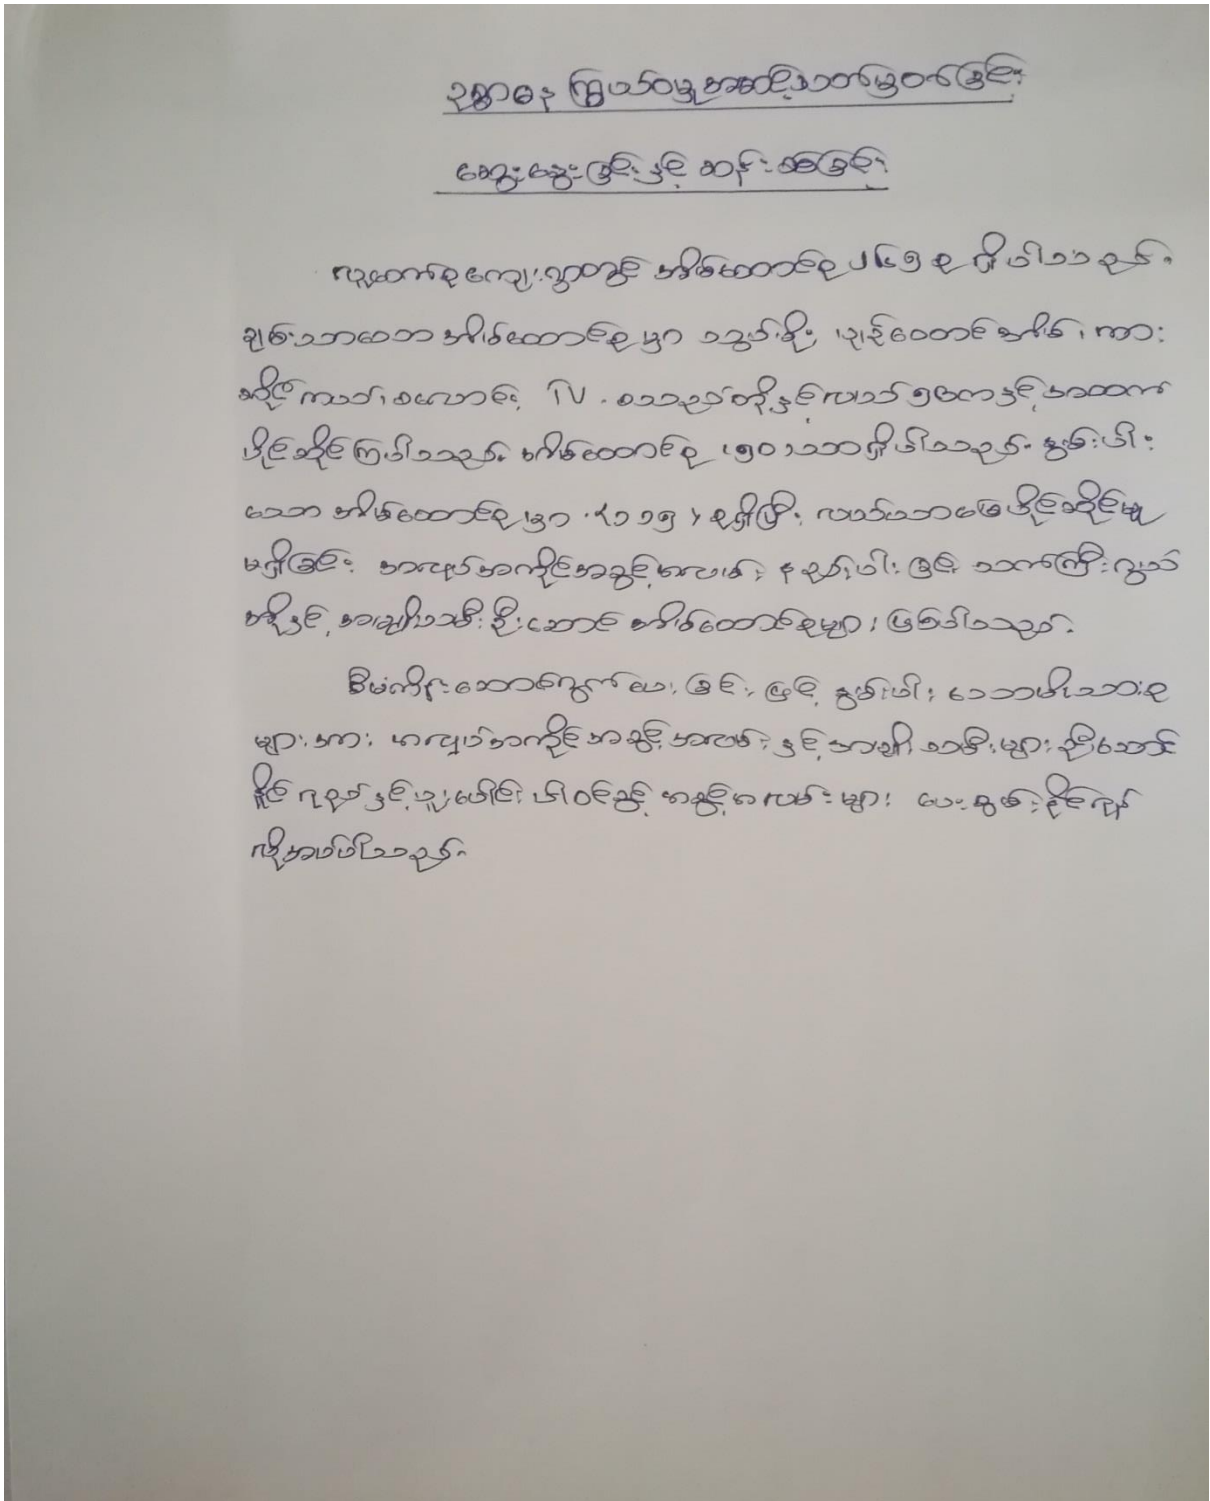 ဥစ္စာဓန ကြွယ်ဝမှုအဆင့်သတ်မှတ်ခြင်း
ဆွေးနွေးခြင်းနှင့် ဆန်းစစ်ခြင်း
ကျေးရွာတွင် အိမ်ထောင်စု ၂၆၅ စု ရှိပါသည်။
ချမ်းသာသော အိမ်ထောင်စုမှာ သွပ်မိုး၊ ပျဉ်ထောင်အိမ်၊ ကား
ဆိုင်ကယ်၊ စလောင်း, TV . စသည်တို့နှင့်လယ် ၅ဧကနှင့်အထက်
ပိုင်ဆိုင်ကြပါသည်။ အိမ်ထောင်စု (၅၀)သာရှိပါသည်။ နွမ်းပါး
သော အိမ်ထောင်စုမှာ (၁၁၅) စုရှိပြီး လယ်ယာမြေပိုင်ဆိုင်မှု
မရှိခြင်း အလုပ်အကိုင်အခွင့်အလမ်း နည်းပါးခြင်း သက်ကြီးရွယ်
အိုနှင့် အမျိုးသမီးဦးဆောင် အိမ်ထောင်စုများ ဖြစ်ပါသည်။
စီမံကိန်းဆောင်ရွက်ပေးခြင်းဖြင့် နွမ်းပါးသောမိသားစု
များအား အလုပ်အကိုင်အခွင့်အလမ်းနှင့် အမျိုးသမီးများ ဦးဆောင်
နိုင်ရည်နှင့် ပူးပေါင်းပါဝင်ခွင့် အခွင့်အလမ်းများ ပေးစွမ်းနိုင်ရန်
လိုအပ်ပါသည်။